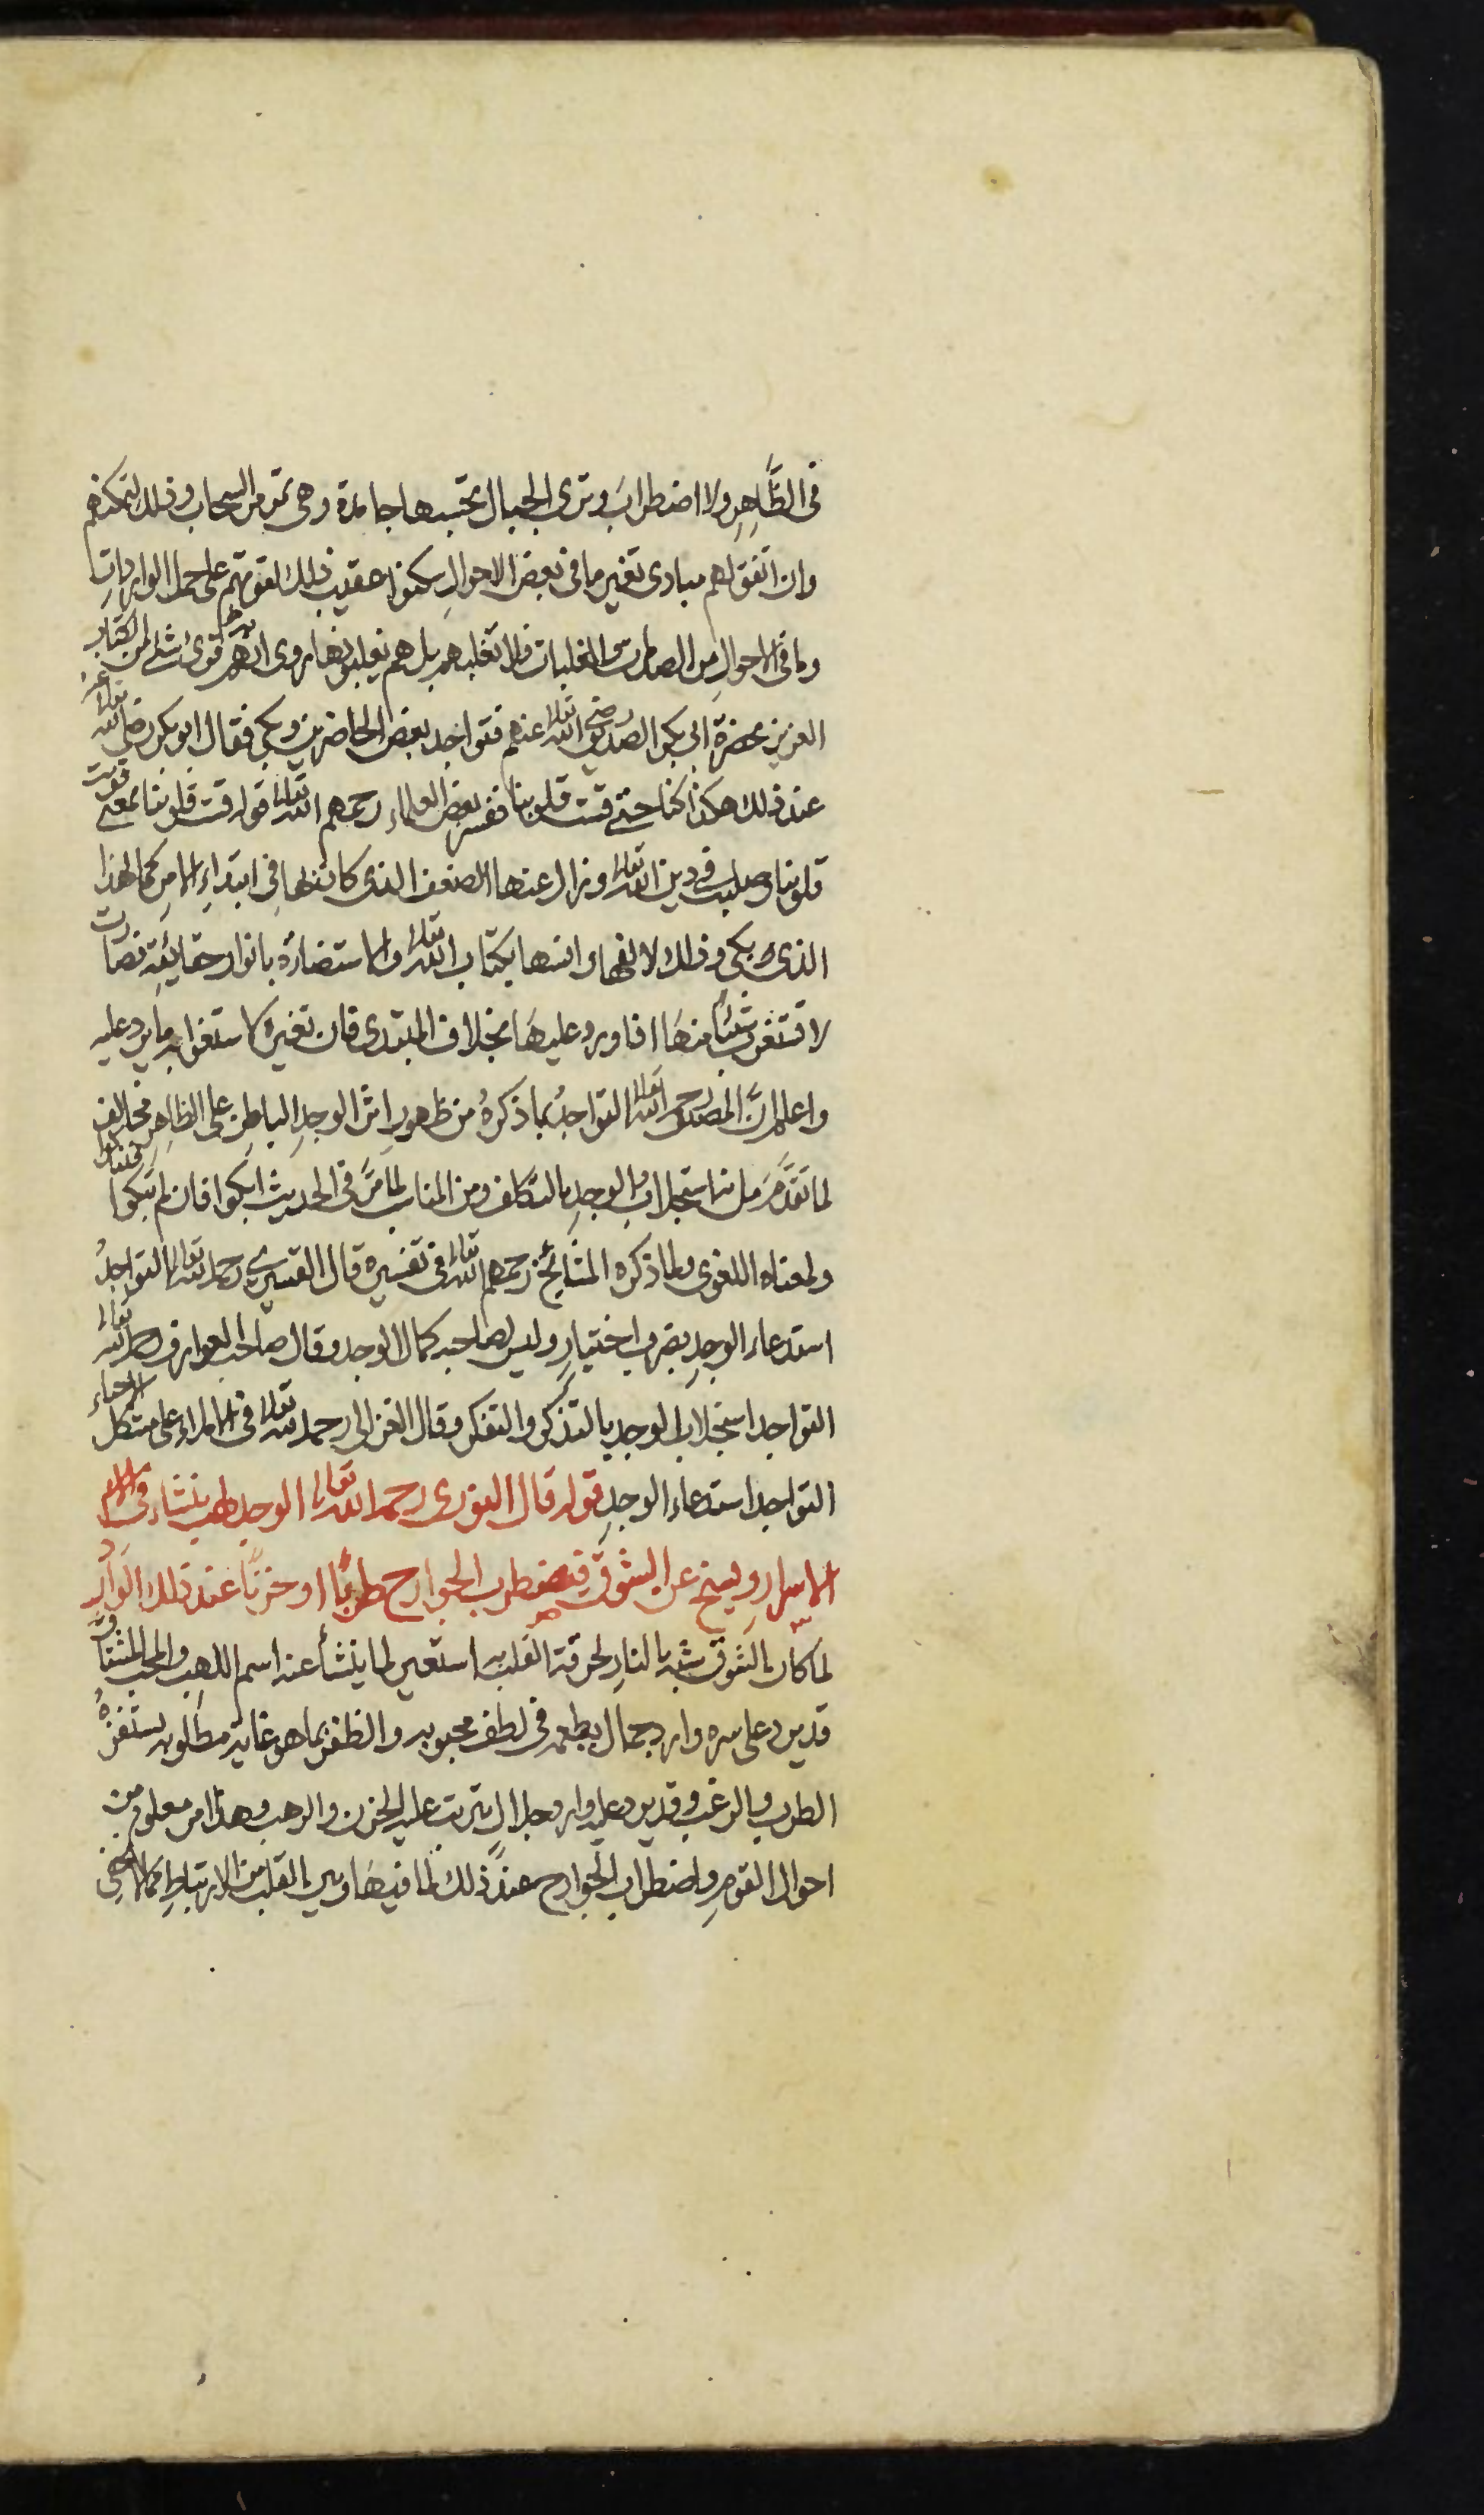 فى الظَّاهِرِ ولا اضطرابَ وترى الجبال تحسبها جامدة وهى تمر مر السحاب وذلك لتمكنهم
وان اتفق لهم مبادى تغيير ما فى بعض الاحوالِ سكنوا عقيب ذلك لقوتهم على حمل الوارداتِ
وما فى الاحوالِ من الصدمات والغلبات فلا تغلبهم بل هم يغلبونها روى انهم قرئ شئ من الكتاب
العزيز بحضرةِ ابى بكر الصديق رضى الله تعالى عنهم فتواجد بعض الحاضرين وبكى فقال ابو بكر رضى الله تعالى عنه
عند ذلك هكذا كنا حتى قست قلوبنا ففسر بعض العلماء رحمهم الله تعالى قوله قست قلوبنا بمعنى قويت
قلوبنا وصلبت فى دين الله تعالى وزال عنها الضعف الذى كان لها فى ابتداءِ الامرِ كما لهذا
الذى بكى وذلك لالفها وانسها بكتاب الله تعالى والاستضاءة بانوار حقائقه فصارت
لا تستغرب شيئا منها اذا ورد عليها بخلاف المبتدى فان تغيره لاستغرابه ما يرد عليه
واعلم انَّ المصنف رحمه الله تعالى التواجدُ بما ذكرهُ من ظهورِ اثر الوجدِ الباطنِ على الظاهرِ مخالف
لما تقدَّمَ من انه استجلاب الوجدِ بالتكلف ومن المناسب لما مرَّ فى الحديث ابكوا فان لم تبكوا فتباكوا
ولمعناه اللغوى ولما ذكره المشايخ رحمهم الله تعالى فى تفسيره قال القشيرى رحمه الله تعالى التواجدُ
استدعاء الوجدِ بضرب اختيارٍ وليس لصاحبه كمال الوجد وقال صاحب العوارف رحمه الله تعالى
التواجد استجلاب الوجد بالتذكر والتفكر وقال الغزالى رحمه الله تعالى فى الاملاء على مشكل الاحياء
التواجد استدعاء الوجدِ قوله قال النورى رحمه الله تعالى الوجد لهب ينشاء فى
الاسرارِ ويسنح عن الشوق فتضطرب الجوارح طربًا او حزنًا عند ذلك الوارد
لما كان الشوق يشبه بالنارِ لحرقة القلب به استعير لما ينشأ عنه اسم اللهب والمحب المشتاق
قد يرد على سره وارد جمال يطمعه فى لطف محبوبه والظفر بما هو غاية مطلوبه يستفزهُ
الطرب والرغب وقد يرد عليه وارد جلال يترتب عليه الحزن والرهب وهذا امر معلوم من
احوال القومِ واضطراب الجوارح عند ذلك لما فيها وبين القلب من الارتباطِ مما لا يخفى